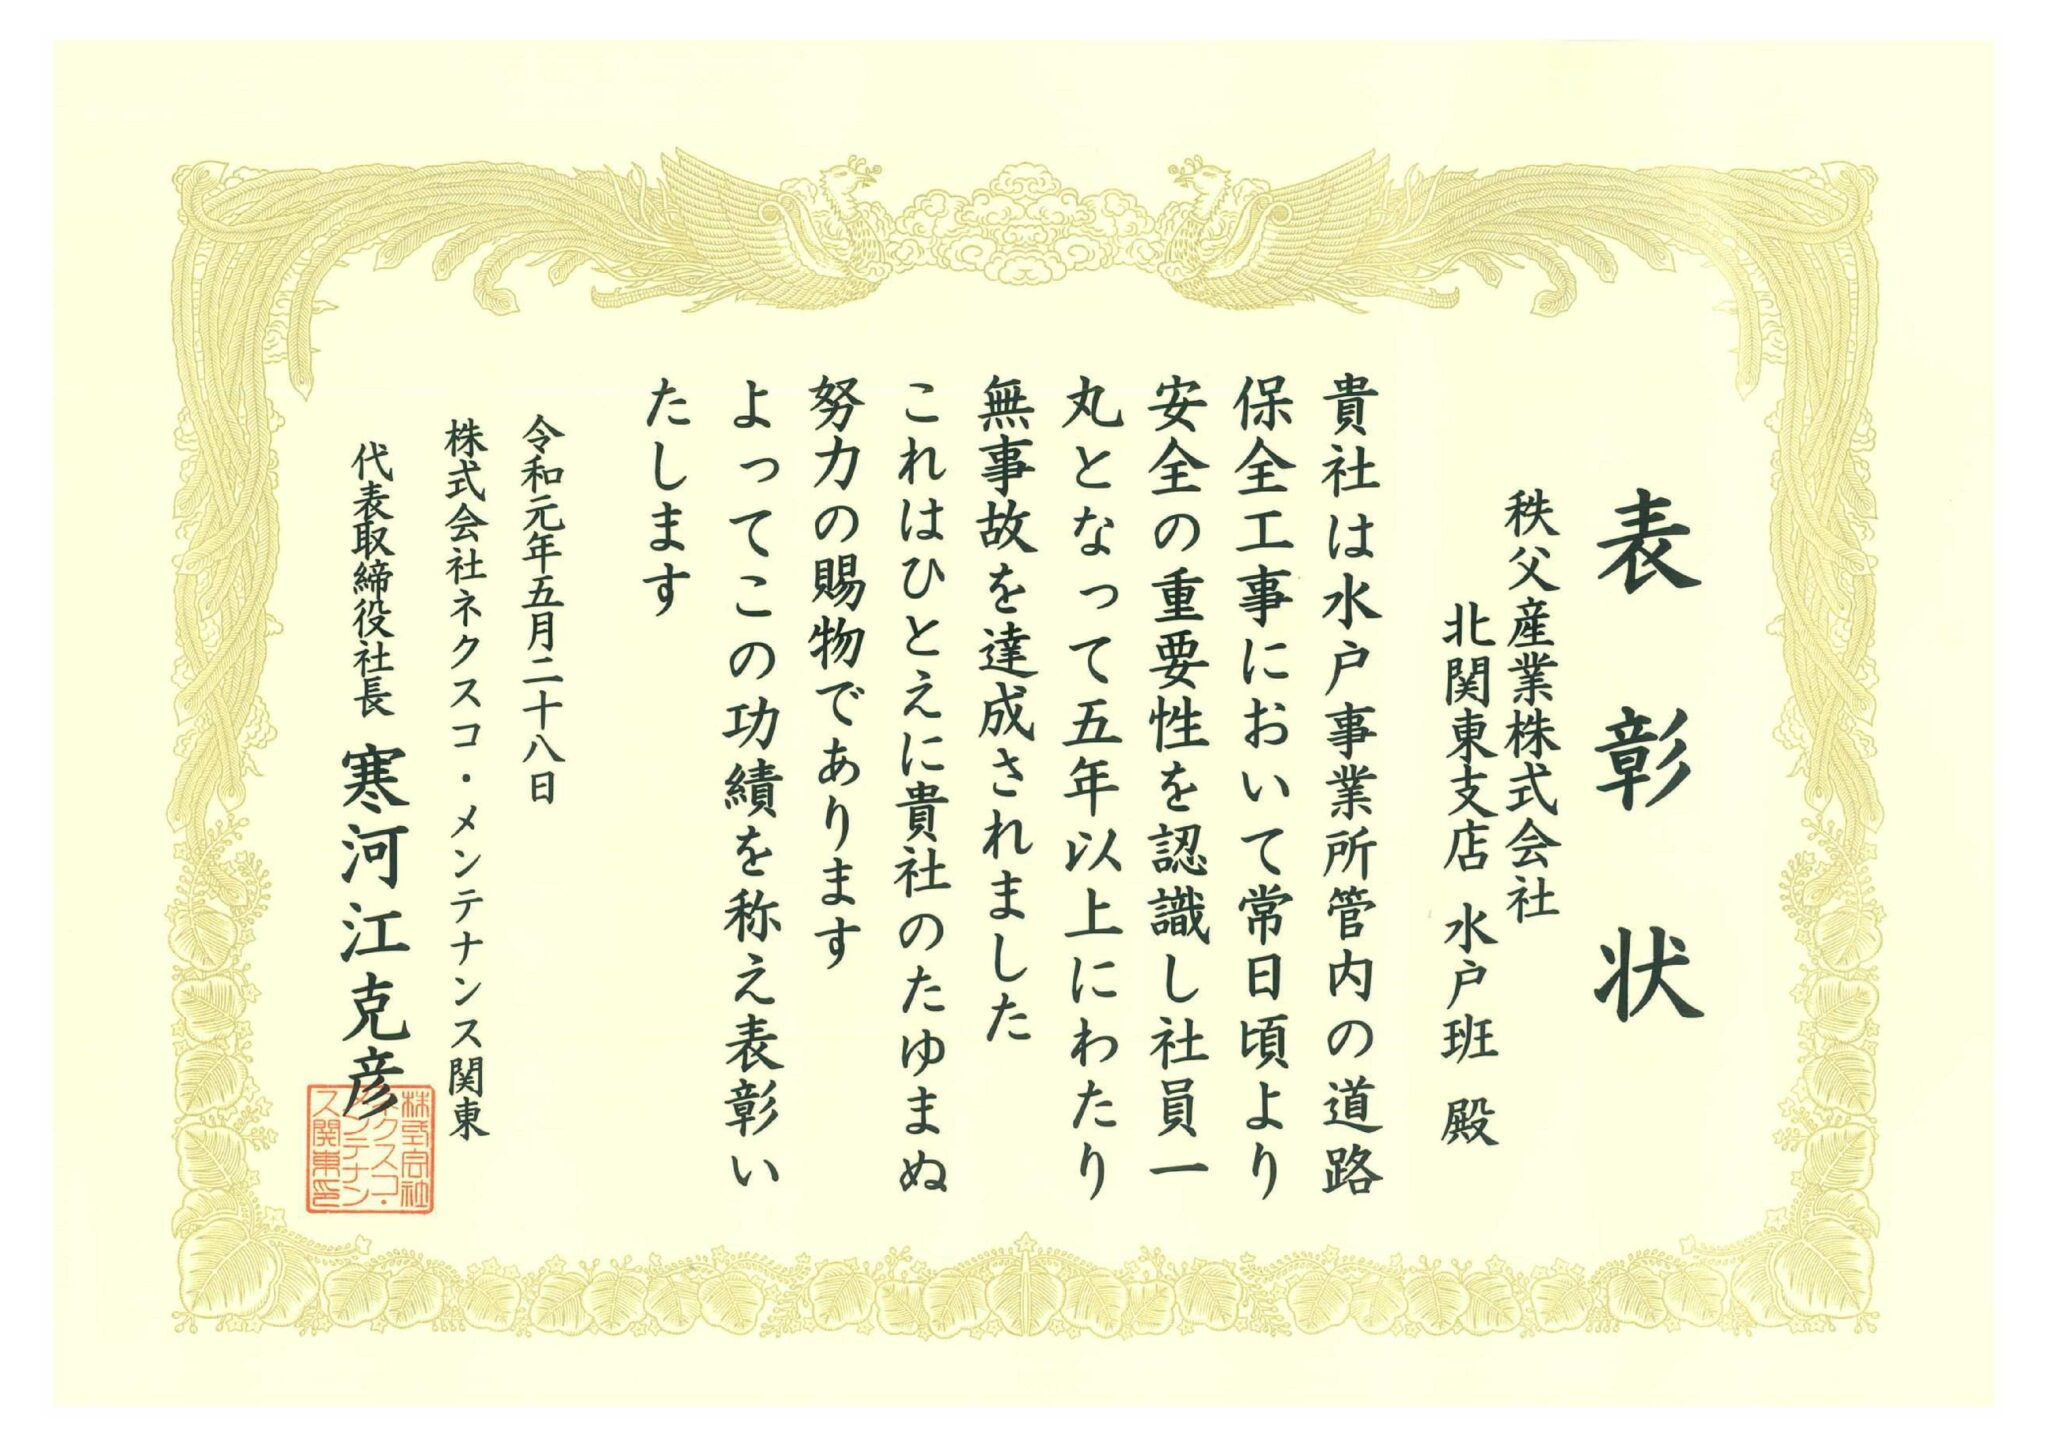 表彰状
秩父産業株式会社
北関東支店 水戸班 殿
貴社は水戸事業所管内の道路
保全工事において常日頃より
安全の重要性を認識し社員一
丸となって五年以上にわたり
無事故を達成されました
これはひとえに貴社のたゆまぬ
努力の賜物であります
よってこの功績を称え表彰い
たします
令和元年五月二十八日
株式会社ネクスコ・メンテナンス関東
代表取締役社長 寒河江克彦
株式会社
ネクスコ・
メンテナン
ス関東印